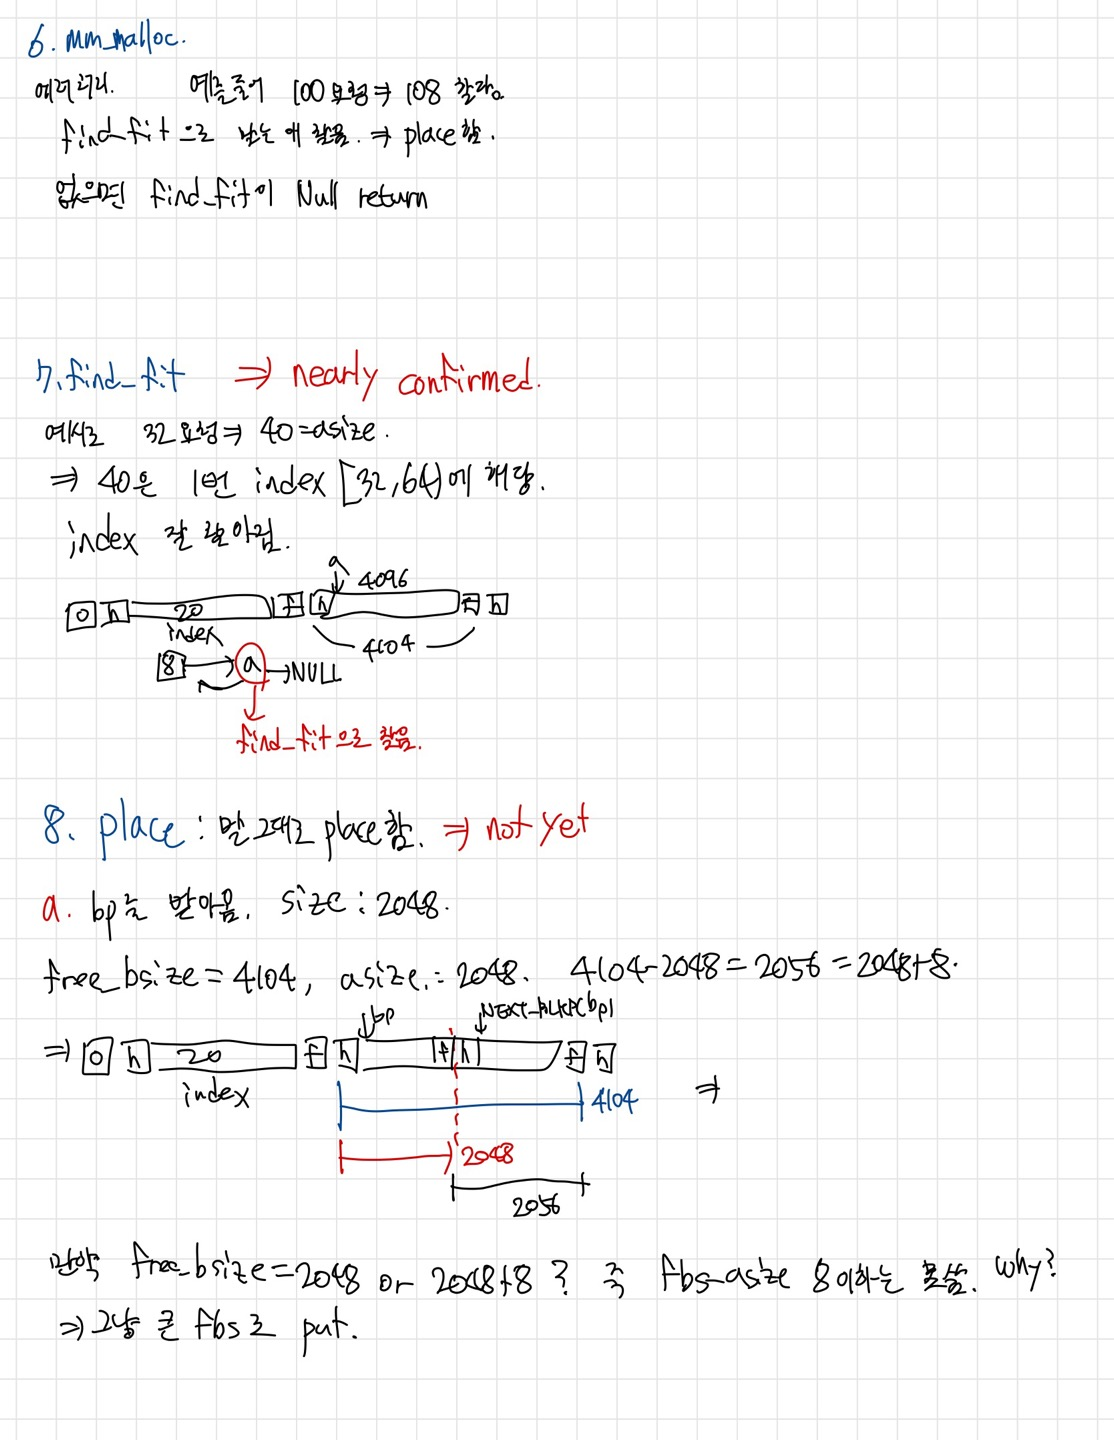 6. mm_malloc.
에러처리. 예를들어 100요청⇒ 108 할당.
find_fit으로 맞는 애 찾음. ⇒ place함.
없으면 find_fit이 Null return
7. find_fit ⇒ nearly confirmed.
예시로 32요청⇒ 40=asize.
⇒ 40은 1번 index [32,64)에 해당.
index 잘 찾아짐.
a
4096
0 h 20 f h f h
index
4104
8 a →NULL
find_fit으로 찾음.
8. place : 말 그대로 place함. ⇒ not yet
a. bp를 받아옴. size : 2048.
free_bsize = 4104, asize = 2048. 4104-2048 = 2056 = 2048+8.
bp NEXT_BLKP(bp)
⇒ 0 h 20 f h f h f h
index
4104 ⇒
2048
2056
만약 free_bsize=2048 or 2048+8 ? 즉 fbs-asize 8이하는 못씀. why?
⇒그냥 큰 fbs로 put.